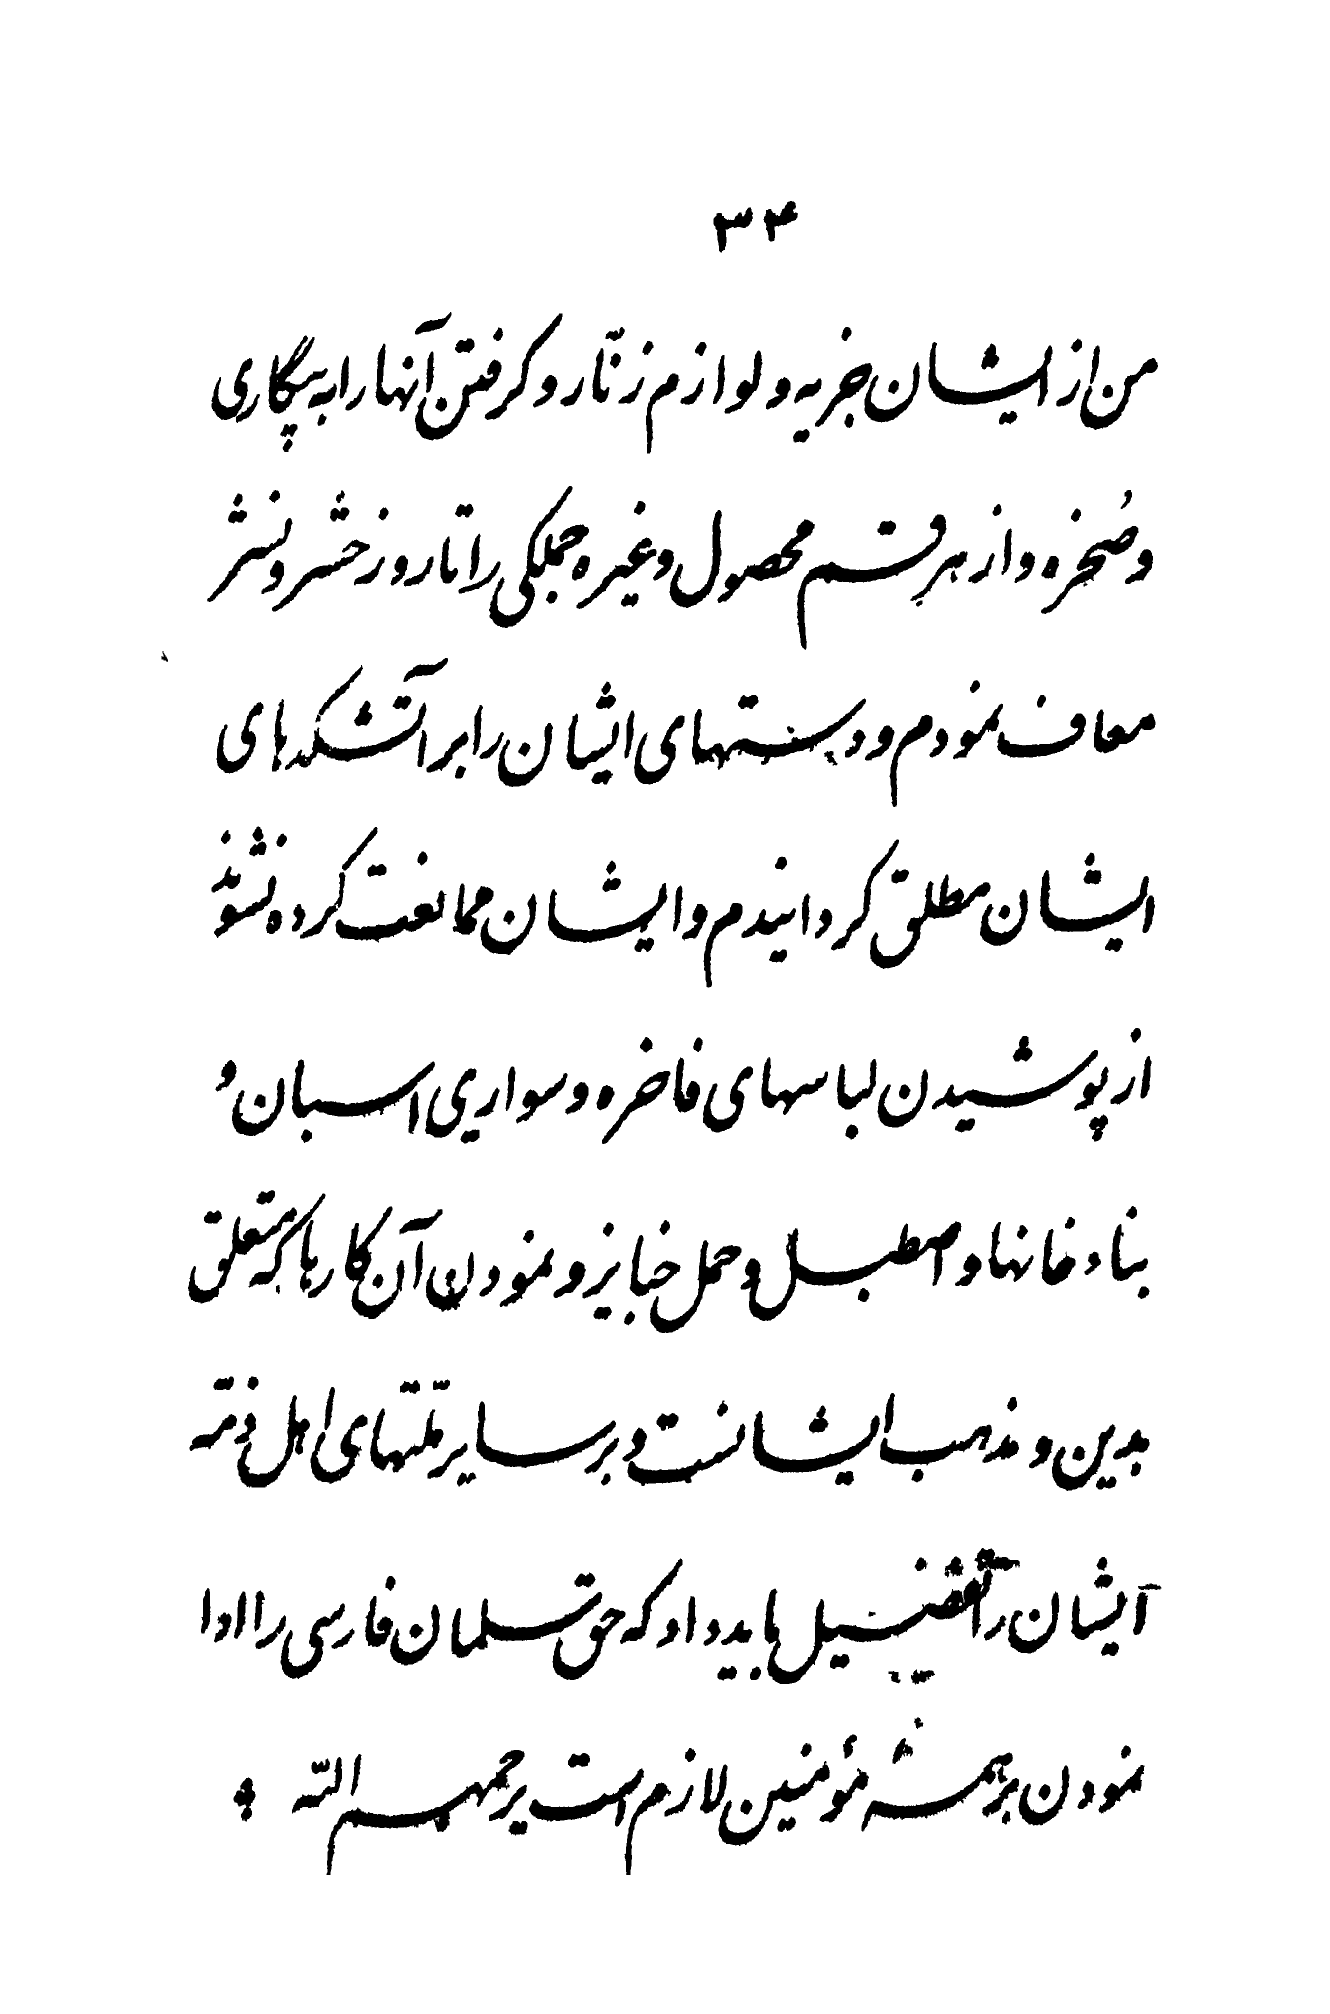 ۳۴
من از ایشان جزیه و لوازم زنّار و گرفتن آنها را به بیگاری
و صُخره و از هر قسم محصول و غیره جملگی را تا روز حشر و نشر
معاف نمودم و دستهای ایشان را بر آتشکدهای
ایشان مطلق گردانیدم و ایشان ممانعت کرده نشوند
از پوشیدن لباسهای فاخره و سواری اسبان و
بناء خانها و اصطبل و حمل خبایز و نمودن آن کارها که متعلق
بدین و مذهب ایشانست و بر سایر ملّتهای اهل ذمّه
ایشان را تفضیل باید داد که حق سلمان فارسی را ادا
نمودن بر همه مؤمنین لازم است یرحمهم اللّه